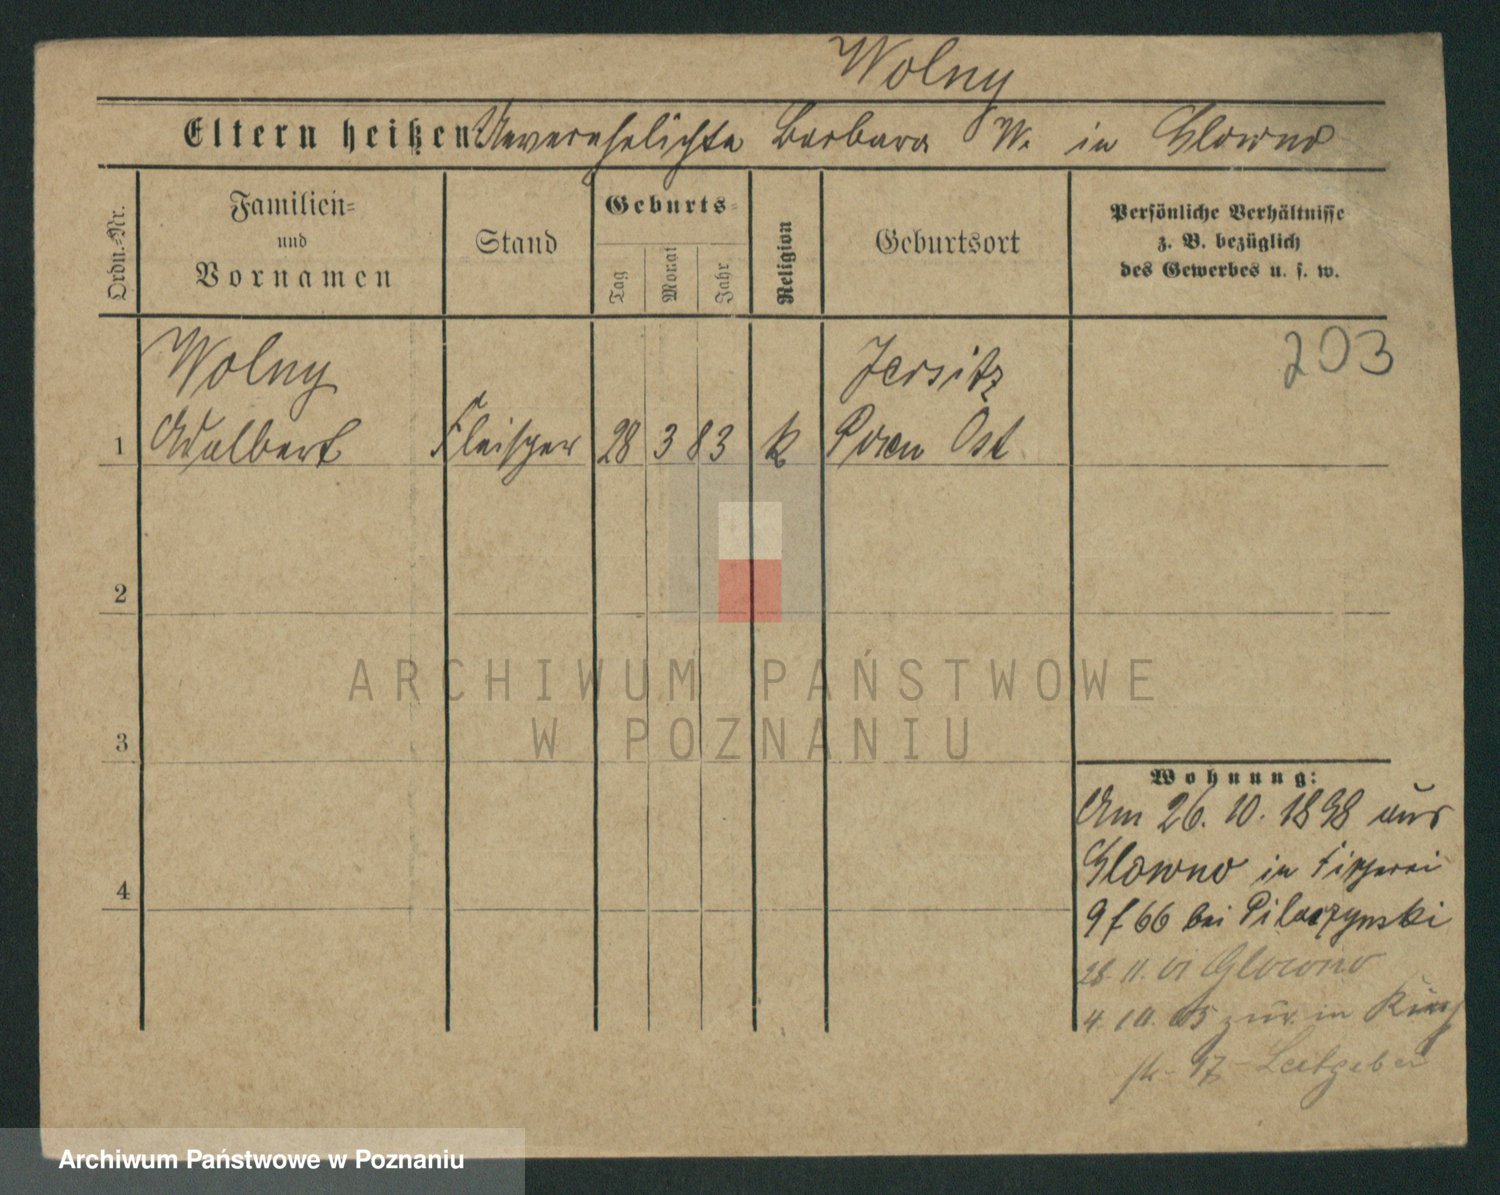 Wolny
Eltern heißen Unverehelichte Barbara W. in Glowno
Ordn.=Nr.
Familien=
und
Vornamen
Stand
Geburts=
Tag
Monat
Jahr
Religion
Geburtsort
Persönliche Verhältnisse
z. B. bezüglich
des Gewerbes u. s. w.
203
Wolny
Jersitz
1 Adalbert Fleischer 28 3 83 k Posen Ost
2
3
4
Wohnung:
Am 26. 10. 1898 aus
Glowno in Fischerei
9 f 66 bei Pilaczynski
28. 11. 01 Glowno
4. 10. 05 zur. in
str. 17 Leitgeber
ARCHIWUM PAŃSTWOWE
W POZNANIU
Archiwum Państwowe w Poznaniu